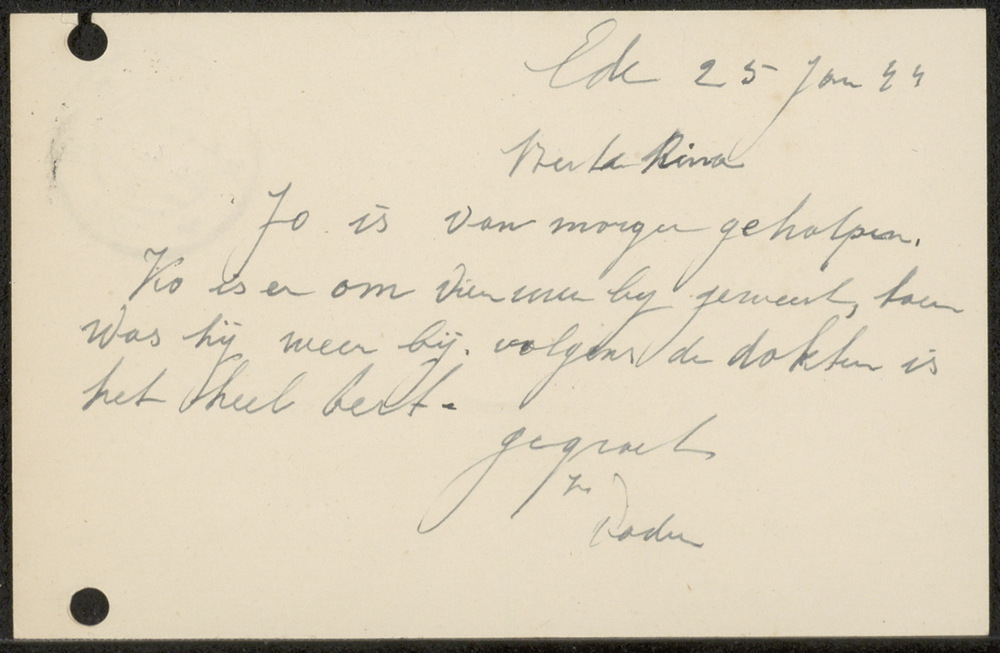 Ede 25 Jan 44
Rina
Jo is van morgen geholpen.
Ko is er om vier uur by geweest, toen
was hij weer bij. volgens de dokter is
het heel best.
gegroet